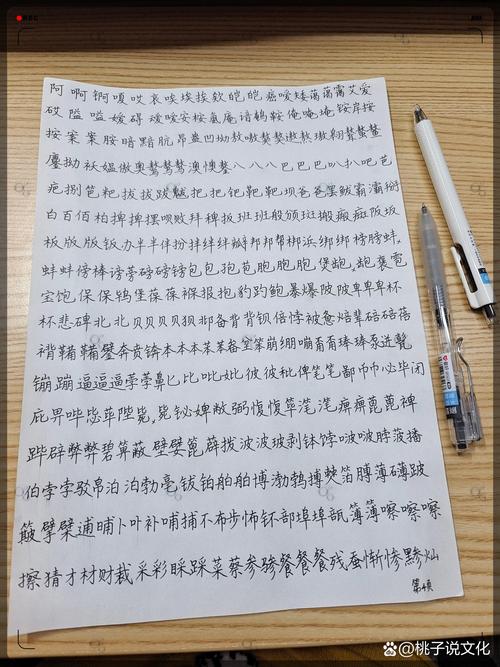 阿 啊 锕 嗄 哎 哀 唉 埃 挨 欸 皑 皑 癌 嗳 矮 蔼 霭 艾 爱
砭 隘 嗌 嫒 碍 暧 安 桉 氨 庵 谙 鹌 鞍 俺 唵 埯 铵 岸 按
按 案 案 胺 暗 黯 肮 昂 盎 凹 坳 敖 嗷 獒 遨 熬 璈 翱 聱 螯 鳌
鏖 拗 袄 媪 傲 奥 骜 澳 懊 鏊 八 八 八 巴 巴 叭 扒 吧 芭
疤 捌 笆 粑 拔 拔 跋 魃 把 把 钯 靶 靶 坝 爸 爸 罢 鲅 霸 灞 掰
白 百 佰 柏 捭 捭 摆 呗 败 拜 稗 扳 班 班 般 颁 斑 搬 瘢 癍 阪 坂
板 版 版 钣 办 半 半 伴 扮 拌 绊 绊 瓣 邦 邦 帮 梆 浜 绑 绑 榜 膀 蚌
蚌 蚌 傍 棒 谤 蒡 磅 磅 镑 包 包 孢 苞 胞 胞 胞 煲 龅 龅 褒 雹
宝 饱 保 保 鸨 堡 葆 葆 褓 报 抱 豹 趵 鲍 暴 爆 陂 陂 卑 卑 卑 杯
杯 悲 碑 北 北 贝 贝 贝 贝 狈 邶 备 背 背 钡 倍 悖 被 惫 焙 辈 碚 碚 蓓
褙 鞴 鞴 鐾 奔 贲 锛 本 本 本 苯 苯 畚 坌 笨 崩 绷 嘣 甭 甭 琫 琫 泵 迸 甏
镚 蹦 逼 逼 逼 荸 荸 鼻 匕 比 吡 妣 彼 彼 秕 俾 笔 笔 鄙 币 币 必 毕 闭
庇 畀 哔 毖 荜 陛 毙 毙 铋 婢 敝 弼 愎 愎 筚 滗 滗 痹 痹 蓖 蓖 裨
跸 辟 弊 弊 碧 箅 蔽 壁 嬖 篦 薜 拨 波 波 玻 剥 钵 饽 啵 啵 脖 菠 播
伯 孛 孛 驳 帛 泊 泊 勃 亳 钹 铂 舶 舶 博 渤 鹁 搏 僰 箔 膊 薄 礴 跛
簸 擘 檗 逋 晡 卜 卟 补 哺 捕 不 布 步 怖 钚 部 埠 埠 瓿 簿 簿 嚓 嚓 嚓
擦 猜 才 材 财 裁 采 彩 睬 踩 菜 蔡 参 骖 餐 餐 餐 残 蚕 惭 惨 黪 灿
第1页
@桃子说文化